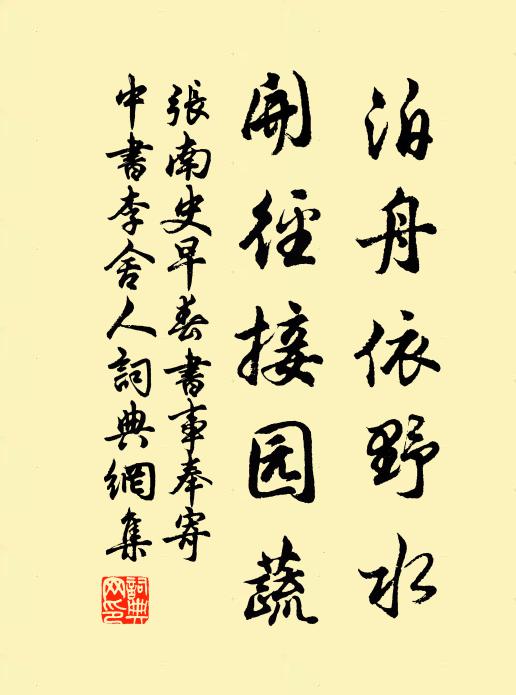 泊舟依野水
開徑接园蔬
張南史早春書事奉寄
中書李舍人詞典網集